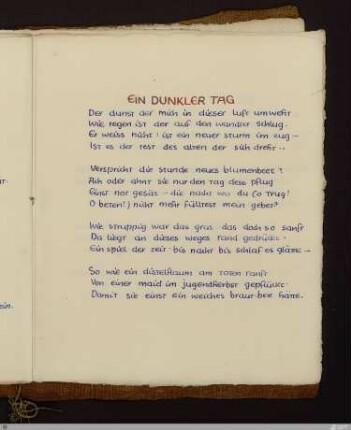 EIN DUNKLER TAG
Der dunst der mich in dieser luft umwehr
Wie regen ist der auf den wandrer schlug.
Er weiss nicht: ist ein neuer sturm im zug –
Ist es der rest des alten der sich dreht ..
Verspricht die stunde neues blumenbeet?
Ach oder ahnt sie nur den tag dess pflug
Einst nur gesäts – die nacht wo du Es Trug!
O beten! / nicht mehr fülltest mein gebet?
Wie struppig war das gras das doch so sanft
Da liegt an dieses weges rand gedrückt ·
Ein spiel der zeit · bis nacht bis schlaf es glänze –
So wie ein distelflaum am toten ranft
Von einer maid im jugendherbst gepflückt
Damit sie einst ein weiches braut-bett hätte.
r.
ein.